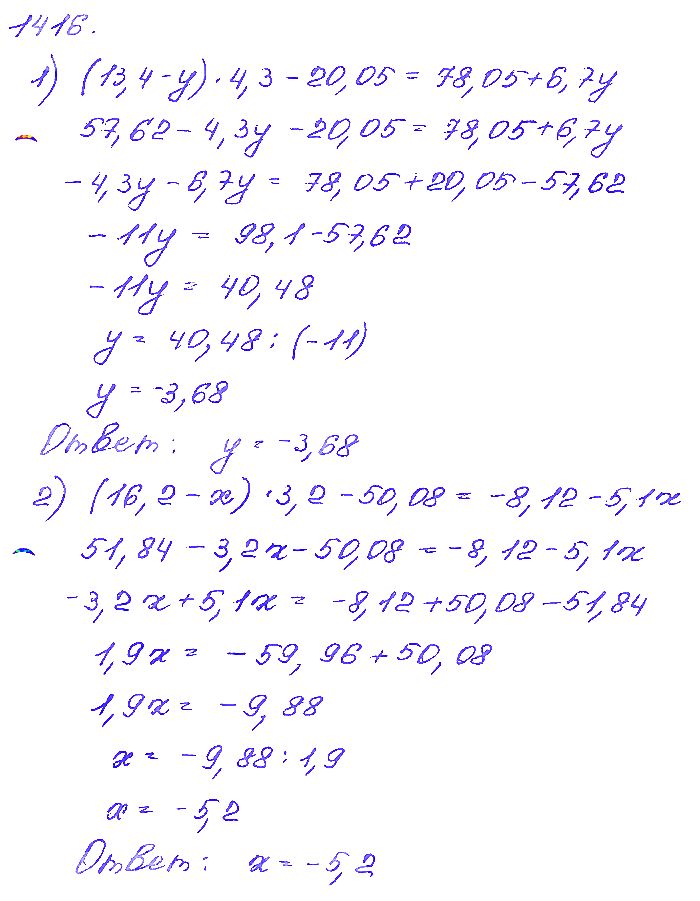 1416.
1) (13,4-y)·4,3-20,05=78,05+6,7y
57,62-4,3y-20,05=78,05+6,7y
-4,3y-6,7y=78,05+20,05-57,62
-11y=98,1-57,62
-11y=40,48
y=40,48:(-11)
y=-3,68
Ответ: y=-3,68
2) (16,2-x)·3,2-50,08=-8,12-5,1x
51,84-3,2x-50,08=-8,12-5,1x
-3,2x+5,1x=-8,12+50,08-51,84
1,9x=-59,96+50,08
1,9x=-9,88
x=-9,88:1,9
x=-5,2
Ответ: x=-5,2